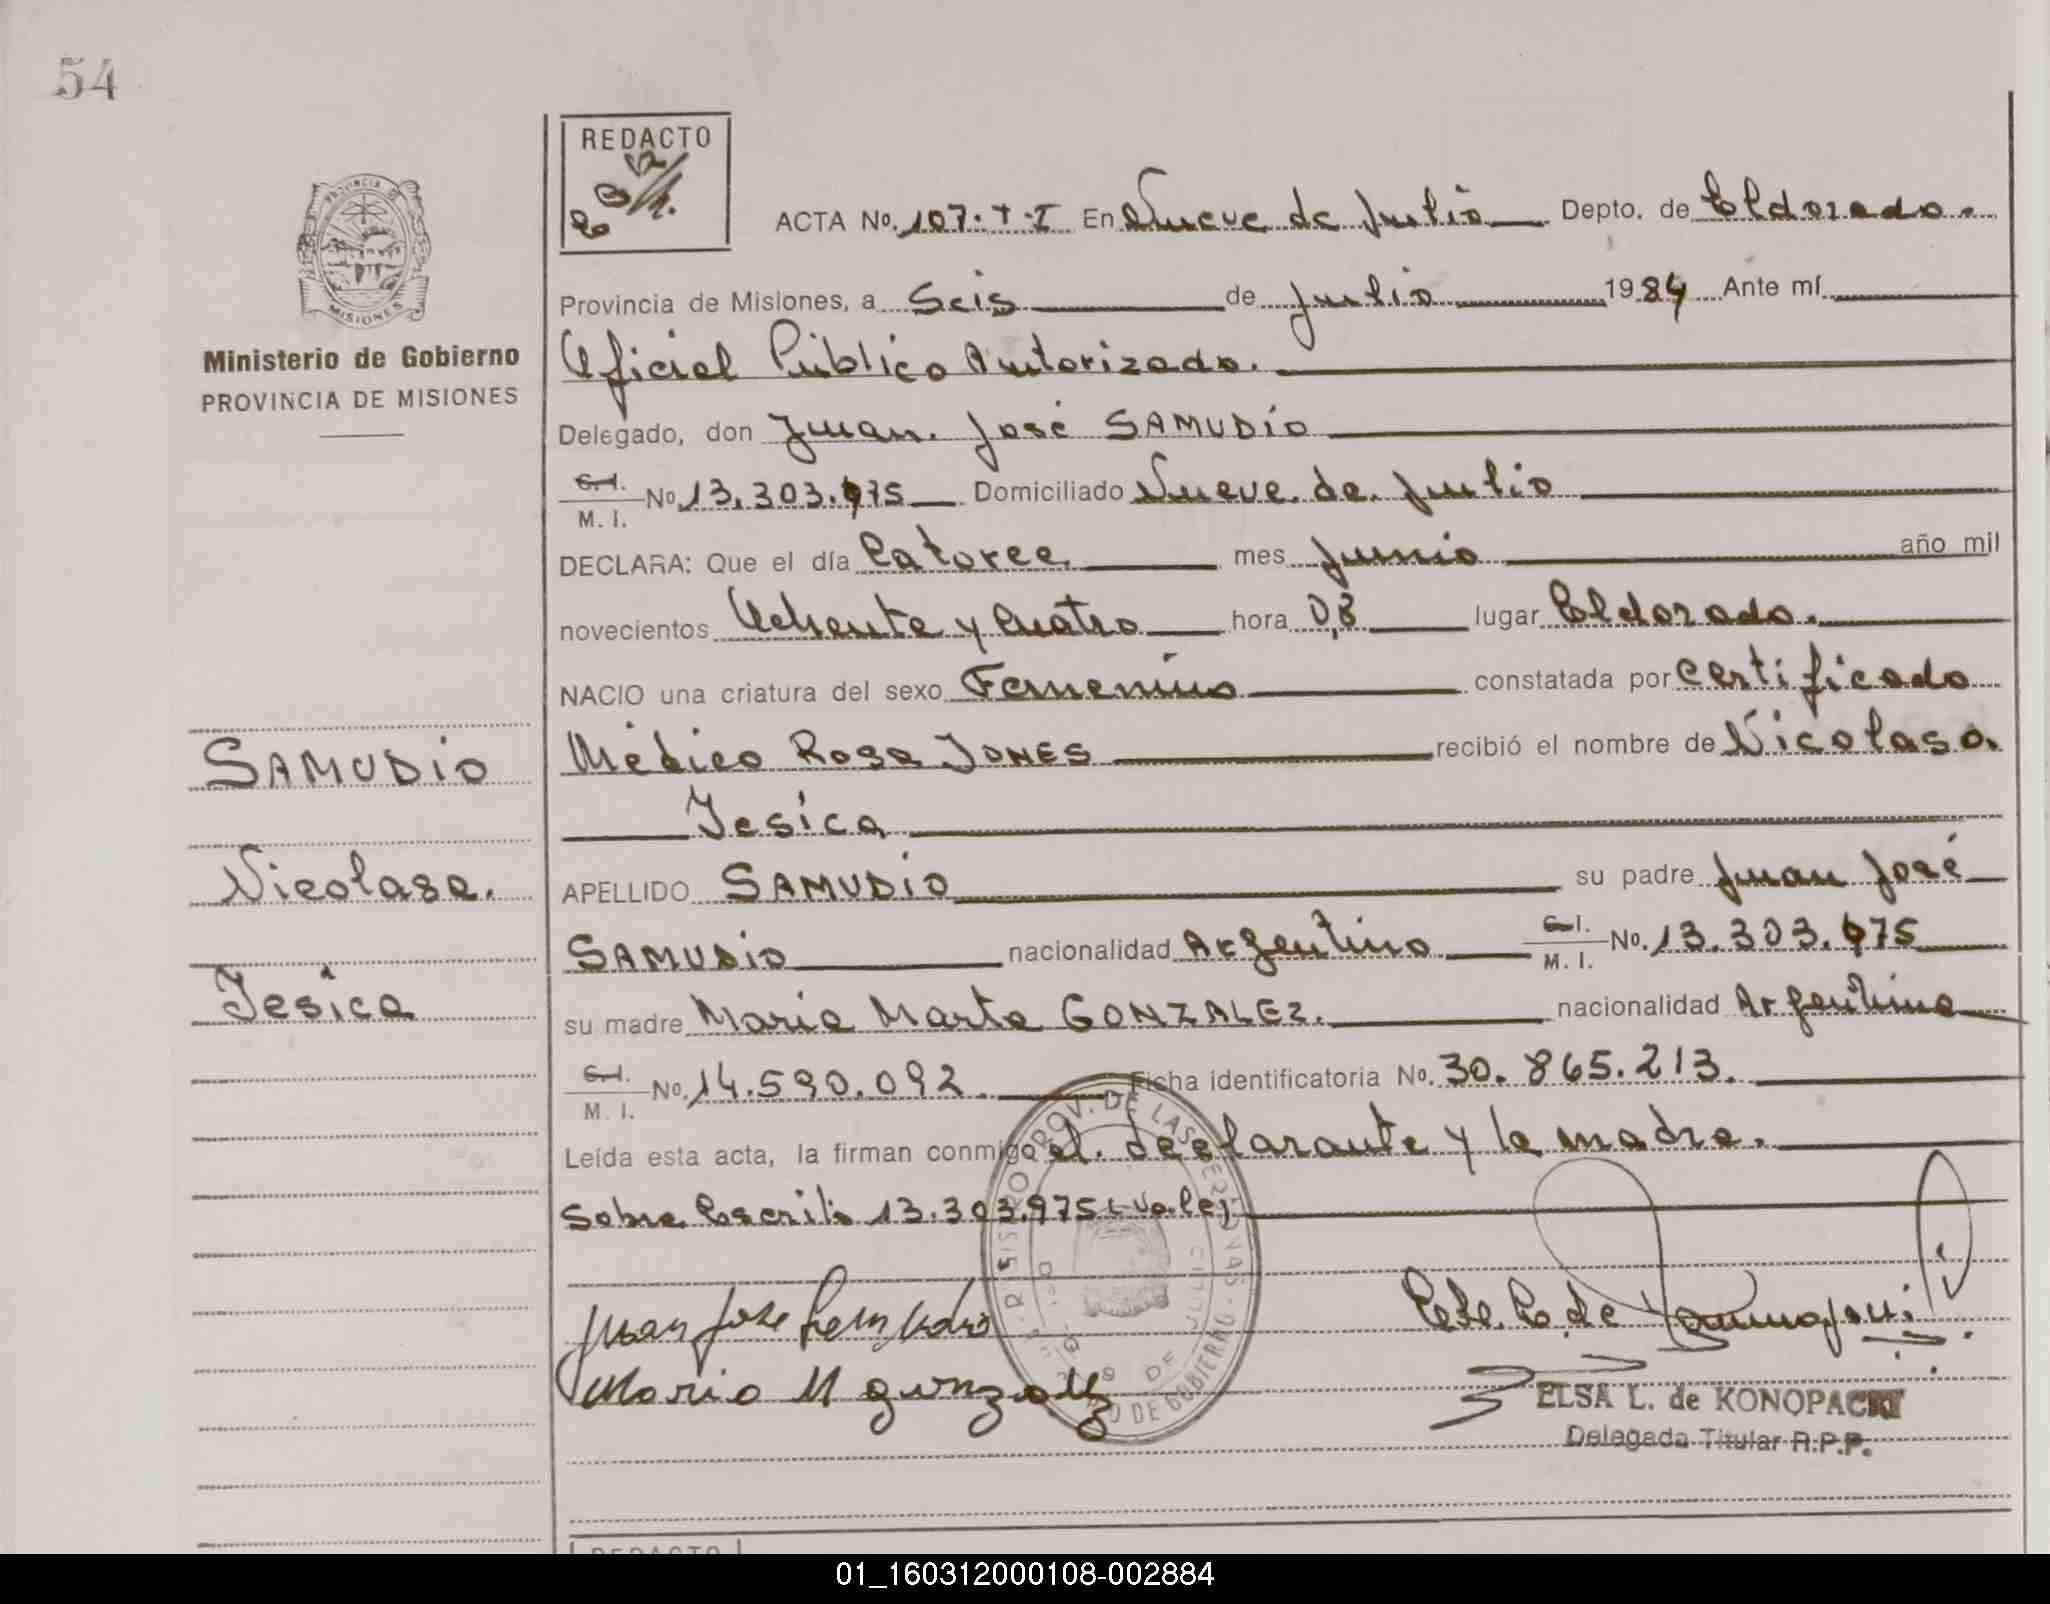 54
REDACTO
ACTA No. 107. T-I En Nueve de Julio Depto. de Eldorado.
Provincia de Misiones, a Seis de Julio 1984 Ante mí
Oficial Público Autorizado.
Delegado, don Juan José SAMUDIO
C.I. M. I. No. 13.303.975 Domiciliado Nueve de Julio
DECLARA: Que el día Catorce mes Junio año mil
novecientos Ochenta y Cuatro hora 0,8 lugar Eldorado.
NACIO una criatura del sexo Femenino constatada por Certificado
Médico Rosa JONES recibió el nombre de Nicolasa
Jesica
APELLIDO SAMUDIO su padre Juan José
SAMUDIO nacionalidad Argentino C.I. M. I. No. 13.303.975
su madre Maria Marta GONZALEZ. nacionalidad Argentina
C.I. M. I. No. 14.590.092. Ficha identificatoria No. 30.865.213.
Leída esta acta, la firman conmigo el declarante y la madre.
Sobre Escrito 13.303.975 (Vale)
Juan Jose Samudio
Maria M gonzalez
ELSA L. de KONOPACKI
Delegada Titular R.P.P.
PROVINCIA DE
MISIONES
Ministerio de Gobierno
PROVINCIA DE MISIONES
SAMUDIO
Nicolasa.
Jesica
REDACTO
01_160312000108-002884